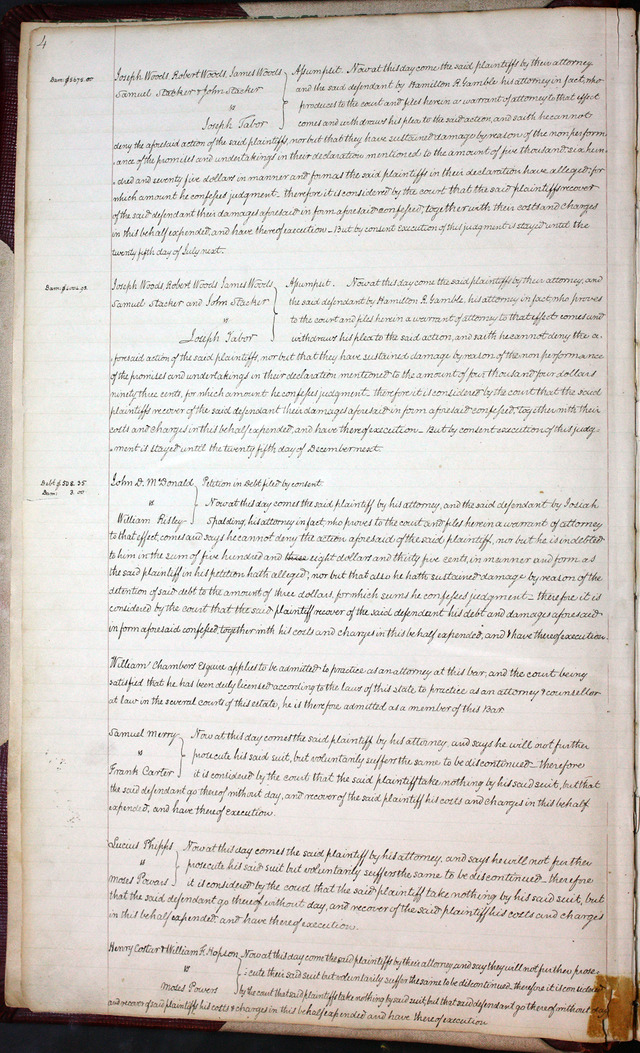 4
Dam: $5675.00
Joseph Woods, Robert Woods, James Woods Assumpsit. Now at this day come the said plaintiffs by their attorney
Samuel Stacker & John Stacker and the said defendant by Hamilton R. Gamble his attorney in fact, who
vs produces to the court and files herein a warrant of attorney to that effect
Joseph Tabor comes and withdraws his plea to the said action, and saith he cannot
deny the aforesaid action of the said plaintiffs, nor but that they have sustained damage by reason of the non perform
ance of the promises and undertakings in their declaration mentioned to the amount of five thousand six hun
dred and seventy five dollars in manner and form as the said plaintiffs in their declaration have alleged: for
which amount he confesses judgment - therefore it is considered by the court that the said plaintiffs recover
of the said defendant their damages aforesaid in form aforesaid confessed, together with their costs and charges
in this behalf expended, and have thereof execution - But by consent execution of this judgment is stayed until the
twenty fifth day of July next.
Dam: $4004.93
Joseph Woods, Robert Woods James Woods Assumpsit. Now at this day come the said plaintiffs by their attorney, and
Samuel Stacker and John Stacker the said defendant by Hamilton R. Gamble, his attorney in fact, who proves
vs to the court and files herein a warrant of attorney to that effect comes and
Joseph Tabor withdraws his plea to the said action, and saith he cannot deny the a-
-foresaid action of the said plaintiffs, nor but that they have sustained damage by reason of the non performance
of the promises and undertakings in their declaration mentioned to the amount of four thousand four dollars
ninety three cents, for which amount he confesses judgment. therefore it is considered by the court that the said
plaintiffs recover of the said defendant their damages aforesaid in form aforesaid confessed, together with their
costs and charges in this behalf expended, and have thereof execution - But by consent execution of this judg
-ment is stayed until the twenty fifth day of December next.
Debt $508.35
Dam: 3.00
John D. McDonald Petition in Debt filed by consent.
vs Now at this day comes the said plaintiff by his attorney, and the said defendant by Josiah
William Risley Spalding, his attorney in fact, who proves to the court and files herein a warrant of attorney
to that effect, comes and says he cannot deny the action aforesaid of the said plaintiff, nor but he is indebted
to him in the sum of five hundred and three eight dollars and thirty five cents, in manner and form as
the said plaintiff in his petition hath alleged, nor but that also he hath sustained damage by reason of the
detention of said debt to the amount of three dollars, for which sums he confesses judgment - therefore it is
considered by the court that the said plaintiff recover of the said defendant his debt and damages aforesaid
in form aforesaid confessed, together with his costs and charges in this behalf expended, and have thereof execution.
William Chambers Esquire applies to be admitted to practice as an attorney at this bar, and the court being
satisfied that he has been duly licensed according to the laws of this state to practice as an attorney & counsellor
at law in the several courts of this estate, he is therefore admitted as a member of this Bar
Samuel Merry Now at this day comes the said plaintiff by his attorney, and says he will not further
vs prosecute his said suit, but voluntarily suffers the same to be discontinued - therefore
Frank Carter it is considered by the court that the said plaintiff take nothing by his said suit, but that
the said defendant go thereof without day, and recover of the said plaintiff his costs and charges in this behalf
expended, and have thereof execution.
Lucius Phipps Now at this day comes the said plaintiff by his attorney, and says he will not further
vs prosecute his said suit but voluntarily suffers the same to be descontinued - therefore
Moses Powars it is considered by the court that the said plaintiff take nothing by his said suit, but
that the said defendant go thereof without day, and recover of the said plaintiff his costs and charges
in this behalf expended, and have thereof execution.
Henry Costar & William F. Hopson Now at this day come the said plaintiffs by their attorney, and say they will not further prose-
vs -cute their said suit but voluntarily suffer the same to be discontinued - therefore it is considered
Moses Powers by the court that said plaintiffs take nothing by said suit, but that said defendant go thereof without day
and recover of said plaintiffs his costs & charges in this behalf expended and have thereof execution